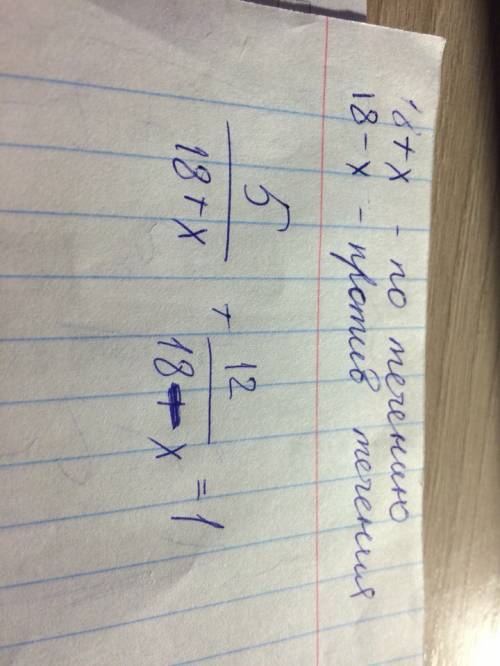 18+x - по течению
18-x - против течения
5/(18+x) + 12/(18-x) = 1